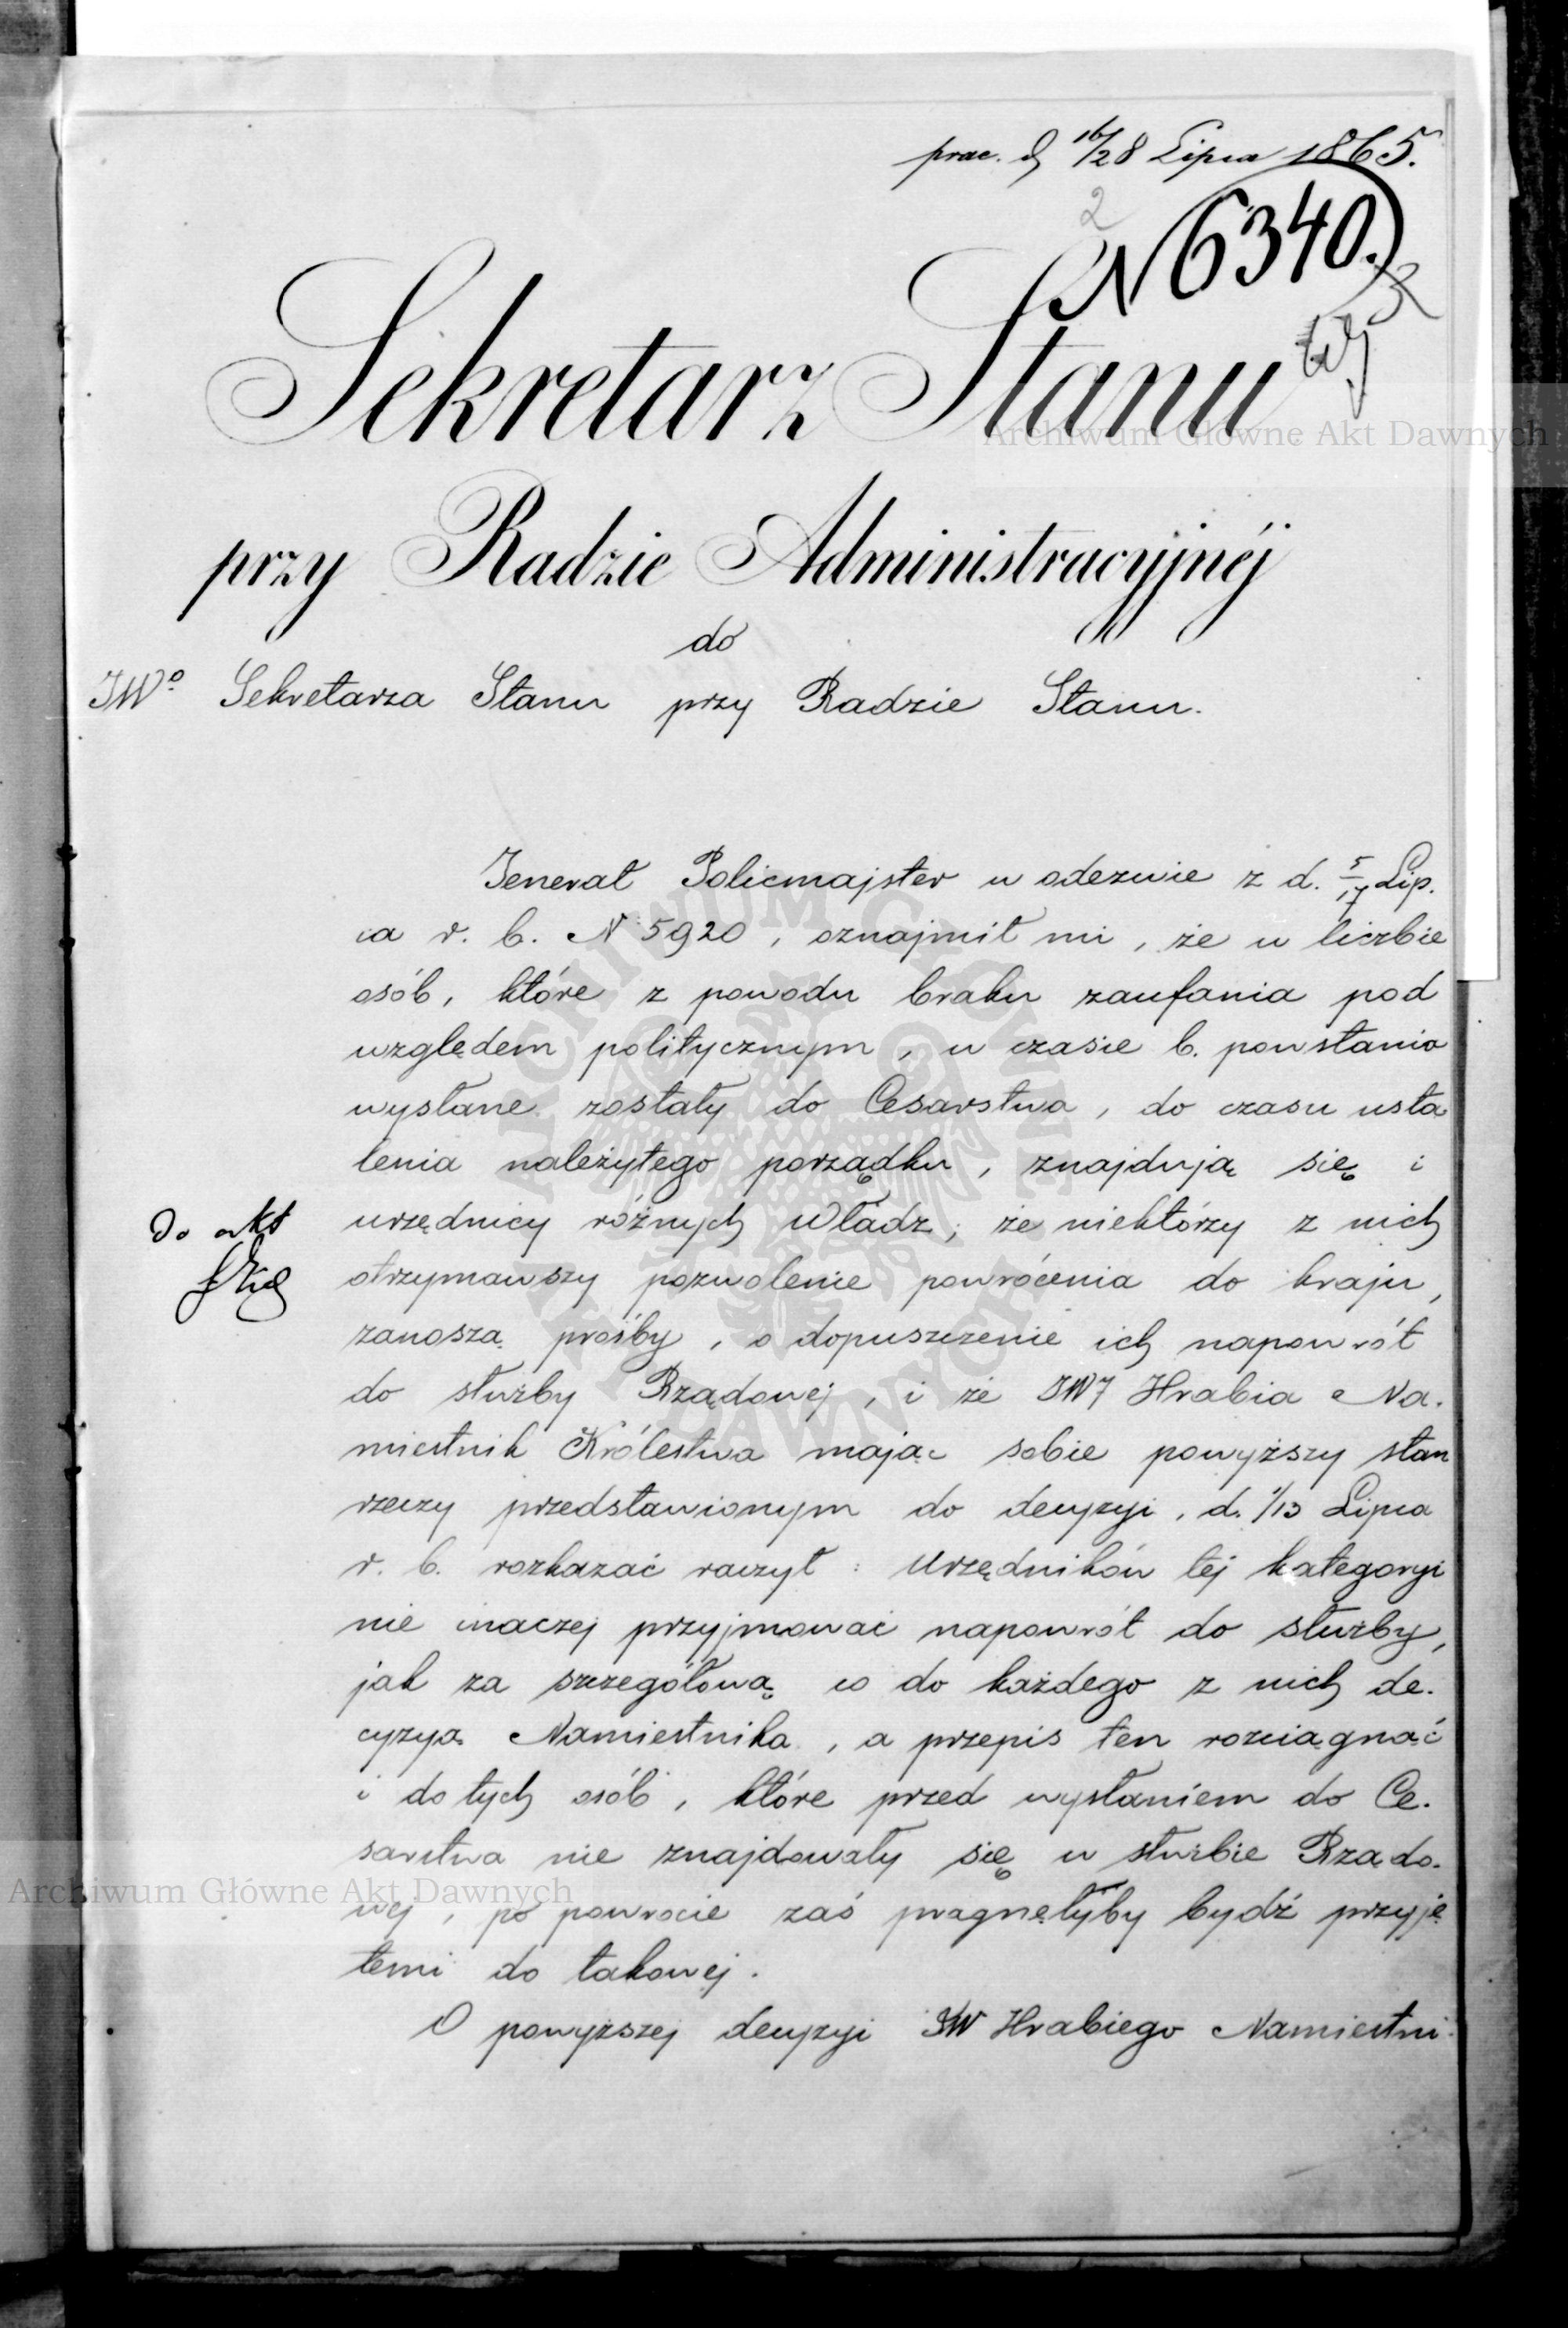 prac. d 16/28 Lipca 1865.
2
N 6340.
Sekretarz Stanu
przy Radzie Administracyjnéj
do
JWo Sekretarza Stanu przy Radzie Stanu.
Jenerał Policmajster w odezwie z d. 5/17 Lip.
ca r. b. N 5920, oznajmił mi, że w liczbie
osób, które z powodu braku zaufania pod
względem politycznym, w czasie b. powstania
wysłane zostały do Cesarstwa, do czasu usta
lenia należytego porządku, znajdują się i
urzędnicy różnych Władz; że niektórzy z nich
Do akt
otrzymawszy pozwolenie powrócenia do kraju,
zanoszą prośby, o dopuszczenie ich napowrót
do służby Rządowej, i że JW Hrabia Na.
miestnik Królestwa mając sobie powyższy stan
rzeczy przedstawionym do decyzyi, d. 1/13 Lipca
r. b. rozkazać raczył: urzędników tej kategoryi
nie inaczej przyjmować napowrót do służby,
jak za szczegółową co do każdego z nich de.
cyzyą Namiestnika, a przepis ten rozciągnąć
i do tych osób, które przed wysłaniem do Ce.
sarstwa nie znajdowały się w służbie Rządo.
wej, po powrocie zaś pragnęłyby bydź przyję
temi do takowej.
O powyższej decyzyi JW Hrabiego Namiestni.
Archiwum Główne Akt Dawnych
Archiwum Główne Akt Dawnych
ARCHIWUM GŁÓWNE AKT DAWNYCH